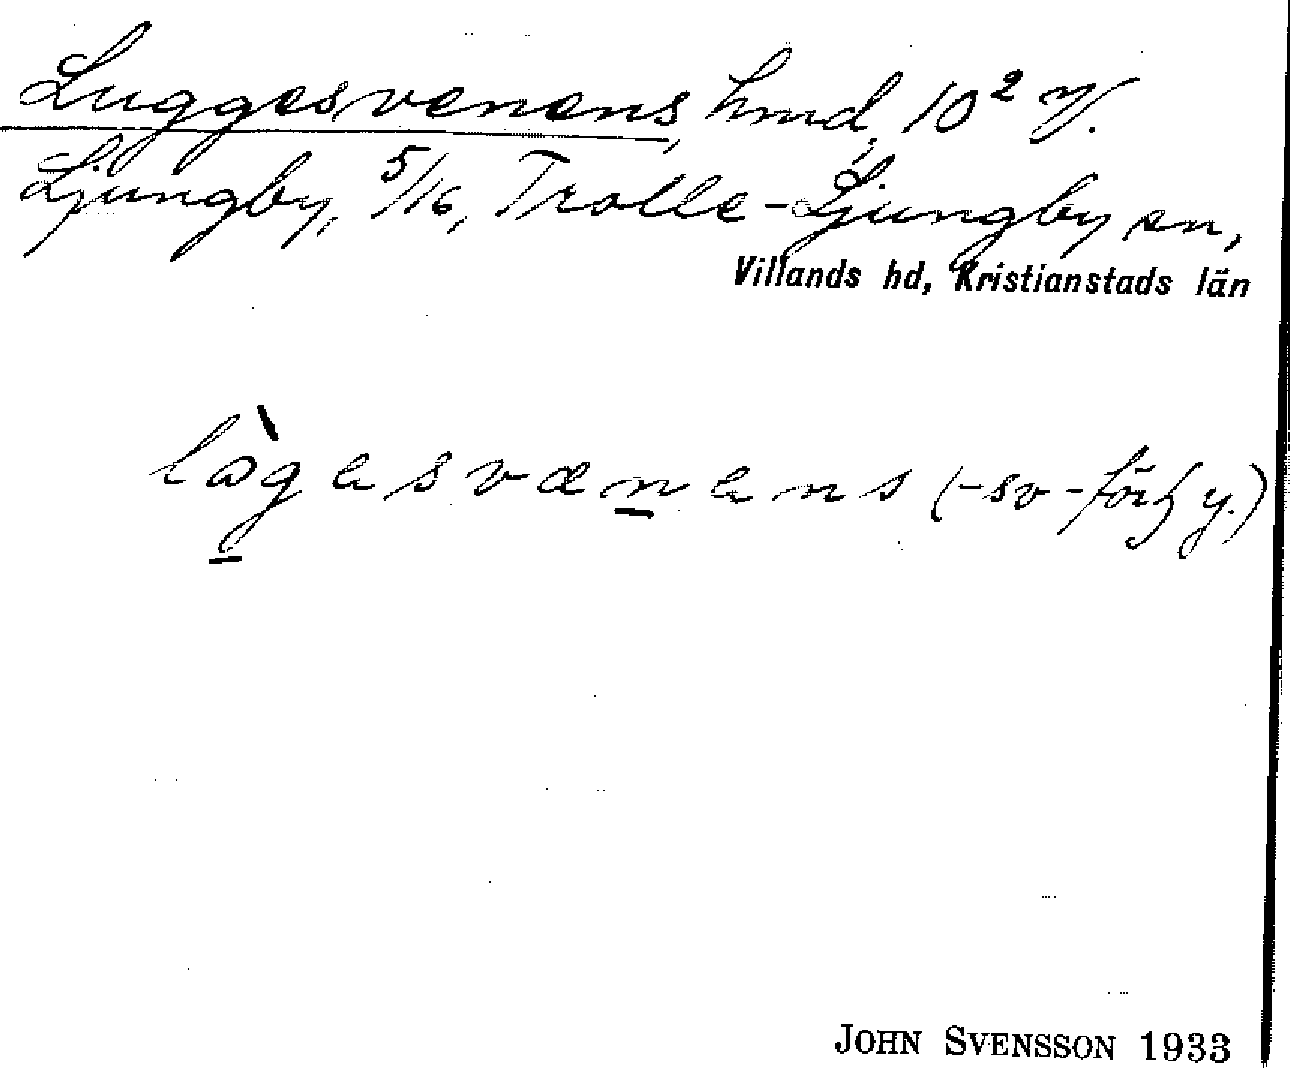 Luggesvenens, hmd, 10² V.
Ljungby, 5/16, Trolle-Ljungby sn,
Villands hd, Kristianstads län
lògasvænans (-sv- förf y.)
JOHN SVENSSON 1933